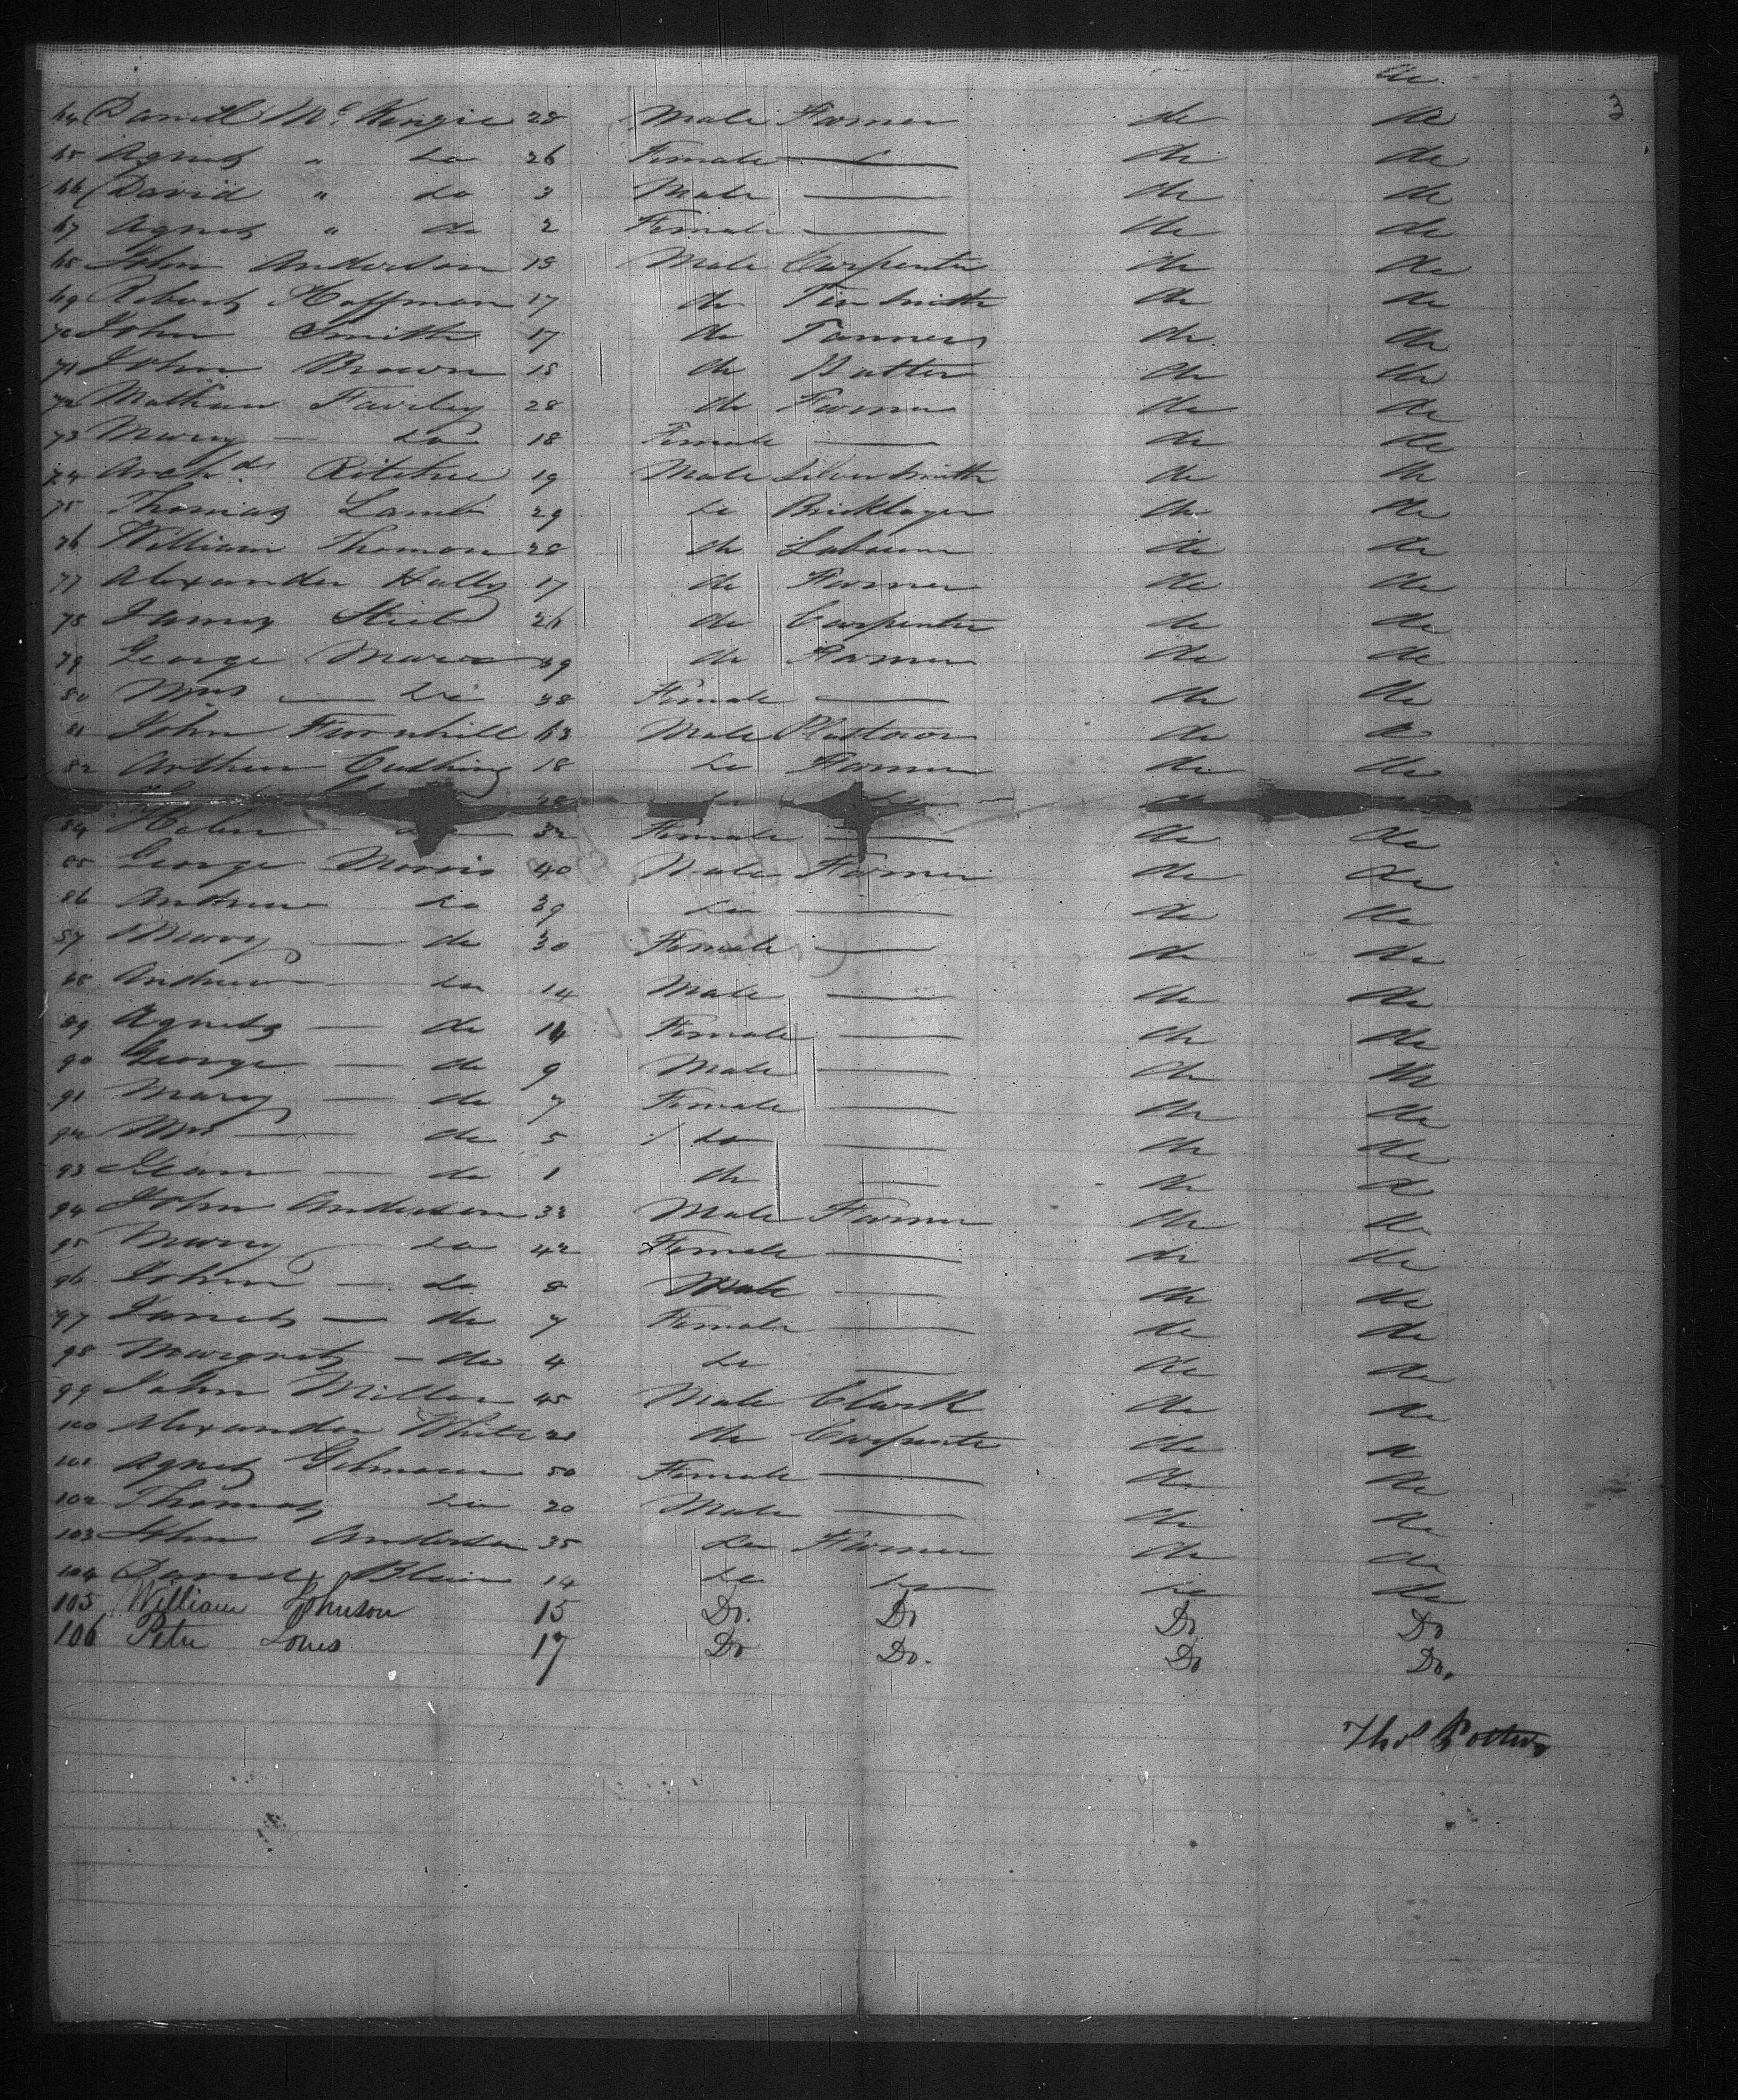 do
3
64 Daniell Mc Kenzie 28 Male Farmer do do
65 Agnes " do 26 Female — do do
66 David " do 3 Male — do do
67 Agnes " do 2 Female — do do
68 John Anderson 18 Male Carpenter do do
69 Robert Hoffman 17 do Tin Smith do do
70 John Smith 17 do Tanner do do
71 John Brown 18 do Hatter do do
72 Mathew Fairley 28 do Farmer do do
73 Mary — do 18 Female — do do
74 Archd. Ritchie 19 Male Silver Smith do do
75 Thomas Lamb 29 do Bricklayer do do
76 William Thomson 28 do Labourer do do
77 Alexander Kelly 17 do Farmer do do
78 James Steel 26 do Carpenter do do
79 George do Farmer do do
80 Mrs — do 38 Female — do do
81 John Furnhill 63 Male do do
82 Arthur Cushing 18 do Farmer do do
do do
84 Helen do 32 Female — do do
85 George Morris 40 Male Farmer do do
86 Andrew do 39 do — do do
87 Mary — do 30 Female — do do
88 Andrew — do 14 Male — do do
89 Agnes — do Female — do do
90 George — do 9 Male — do do
91 Mary — do 7 Female — do do
92 Mrs — do 5 do — do do
93 Jean — do 1 do — do do
94 John Anderson 33 Male Farmer do do
95 Mary — do 42 Female — do do
96 John — do 8 Male — do do
97 Janet — do 7 Female — do do
98 Margret — do 4 do — do do
99 John Miller 45 Male Clark do do
100 Alexander White 20 do Carpenter do do
101 Agnes Gilmour 50 Female — do do
102 Thomas do 20 Male — do do
103 John Anderson 35 do Farmer do do
104 David Blair 14 do do do do
105 William Johnson 15 Do. Do Do Do
106 Peter Jones 17 Do Do. Do Do.
Thos Potter